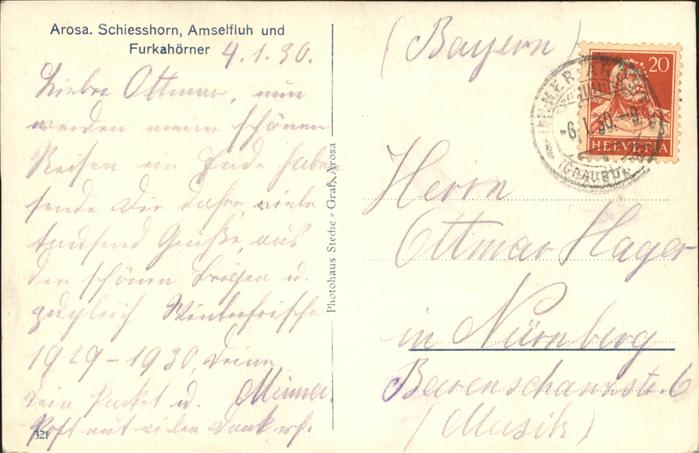 Arosa. Schiesshorn, Amselfluh und
Furkahörner
4.1.30.
Lieber Ottmar, nun
werden meine schönen
Reisen ein Ende haben
sende Dir daher viele
tausend Grüße aus
den schönen u.
zugleich Winterfrische
1929–1930, Deine
Minna.
Dein Packet u.
Post mit vielen Dank erh.
321
Photohaus Steche = Graf, Arosa
(Bayern)
20
HELVETIA
-6.I.30.
(GRAUBÜN
Herrn
Ottmar Hager
in Nürnberg
Bärenschanzstr. 6
(Musik)